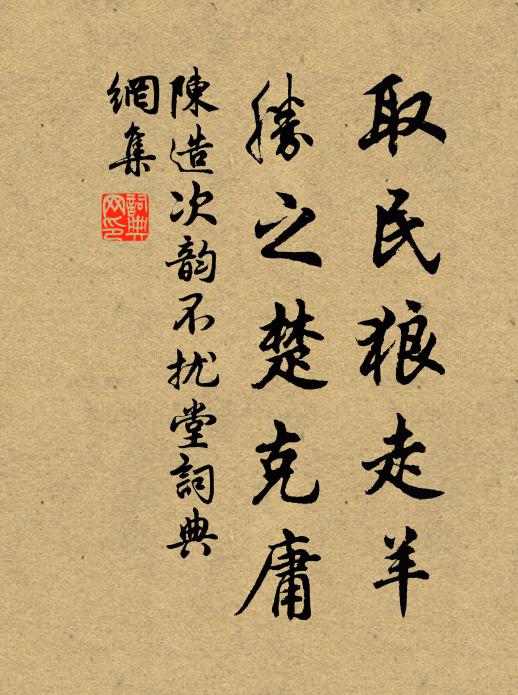 取民狼走羊
勝之楚克庸
陳造次韵不扰堂詞典
網集
詞典
网印